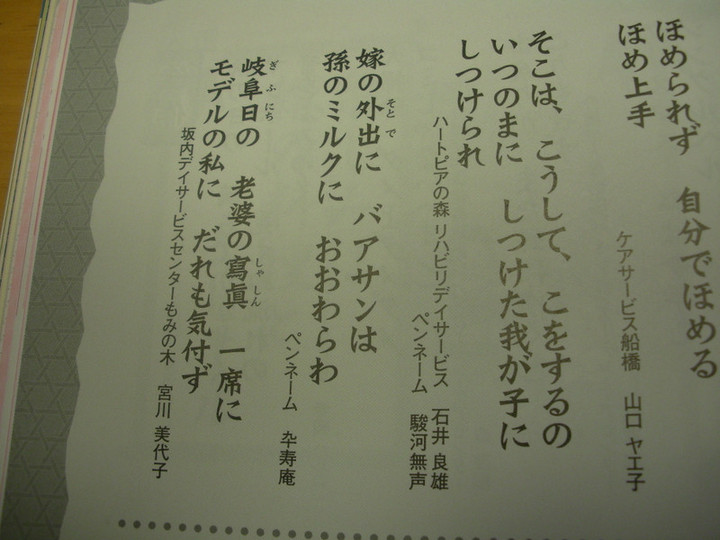 ほめられず　自分でほめる
ほめ上手
ケアサービス船橋　山口 ヤエ子
そこは、こうして、こをするの
いつのまに　しつけた我が子に
しつけられ
ハートピアの森 リハビリデイサービス　石井 良雄
ペンネーム　駿河無声
嫁の外出に　バアサンは
そとで
孫のミルクに　おおわらわ
ペンネーム　卆寿庵
岐阜日の　老婆の寫眞　一席に
ぎふにち　しゃしん
モデルの私に　だれも気付ず
坂内デイサービスセンターもみの木　宮川 美代子